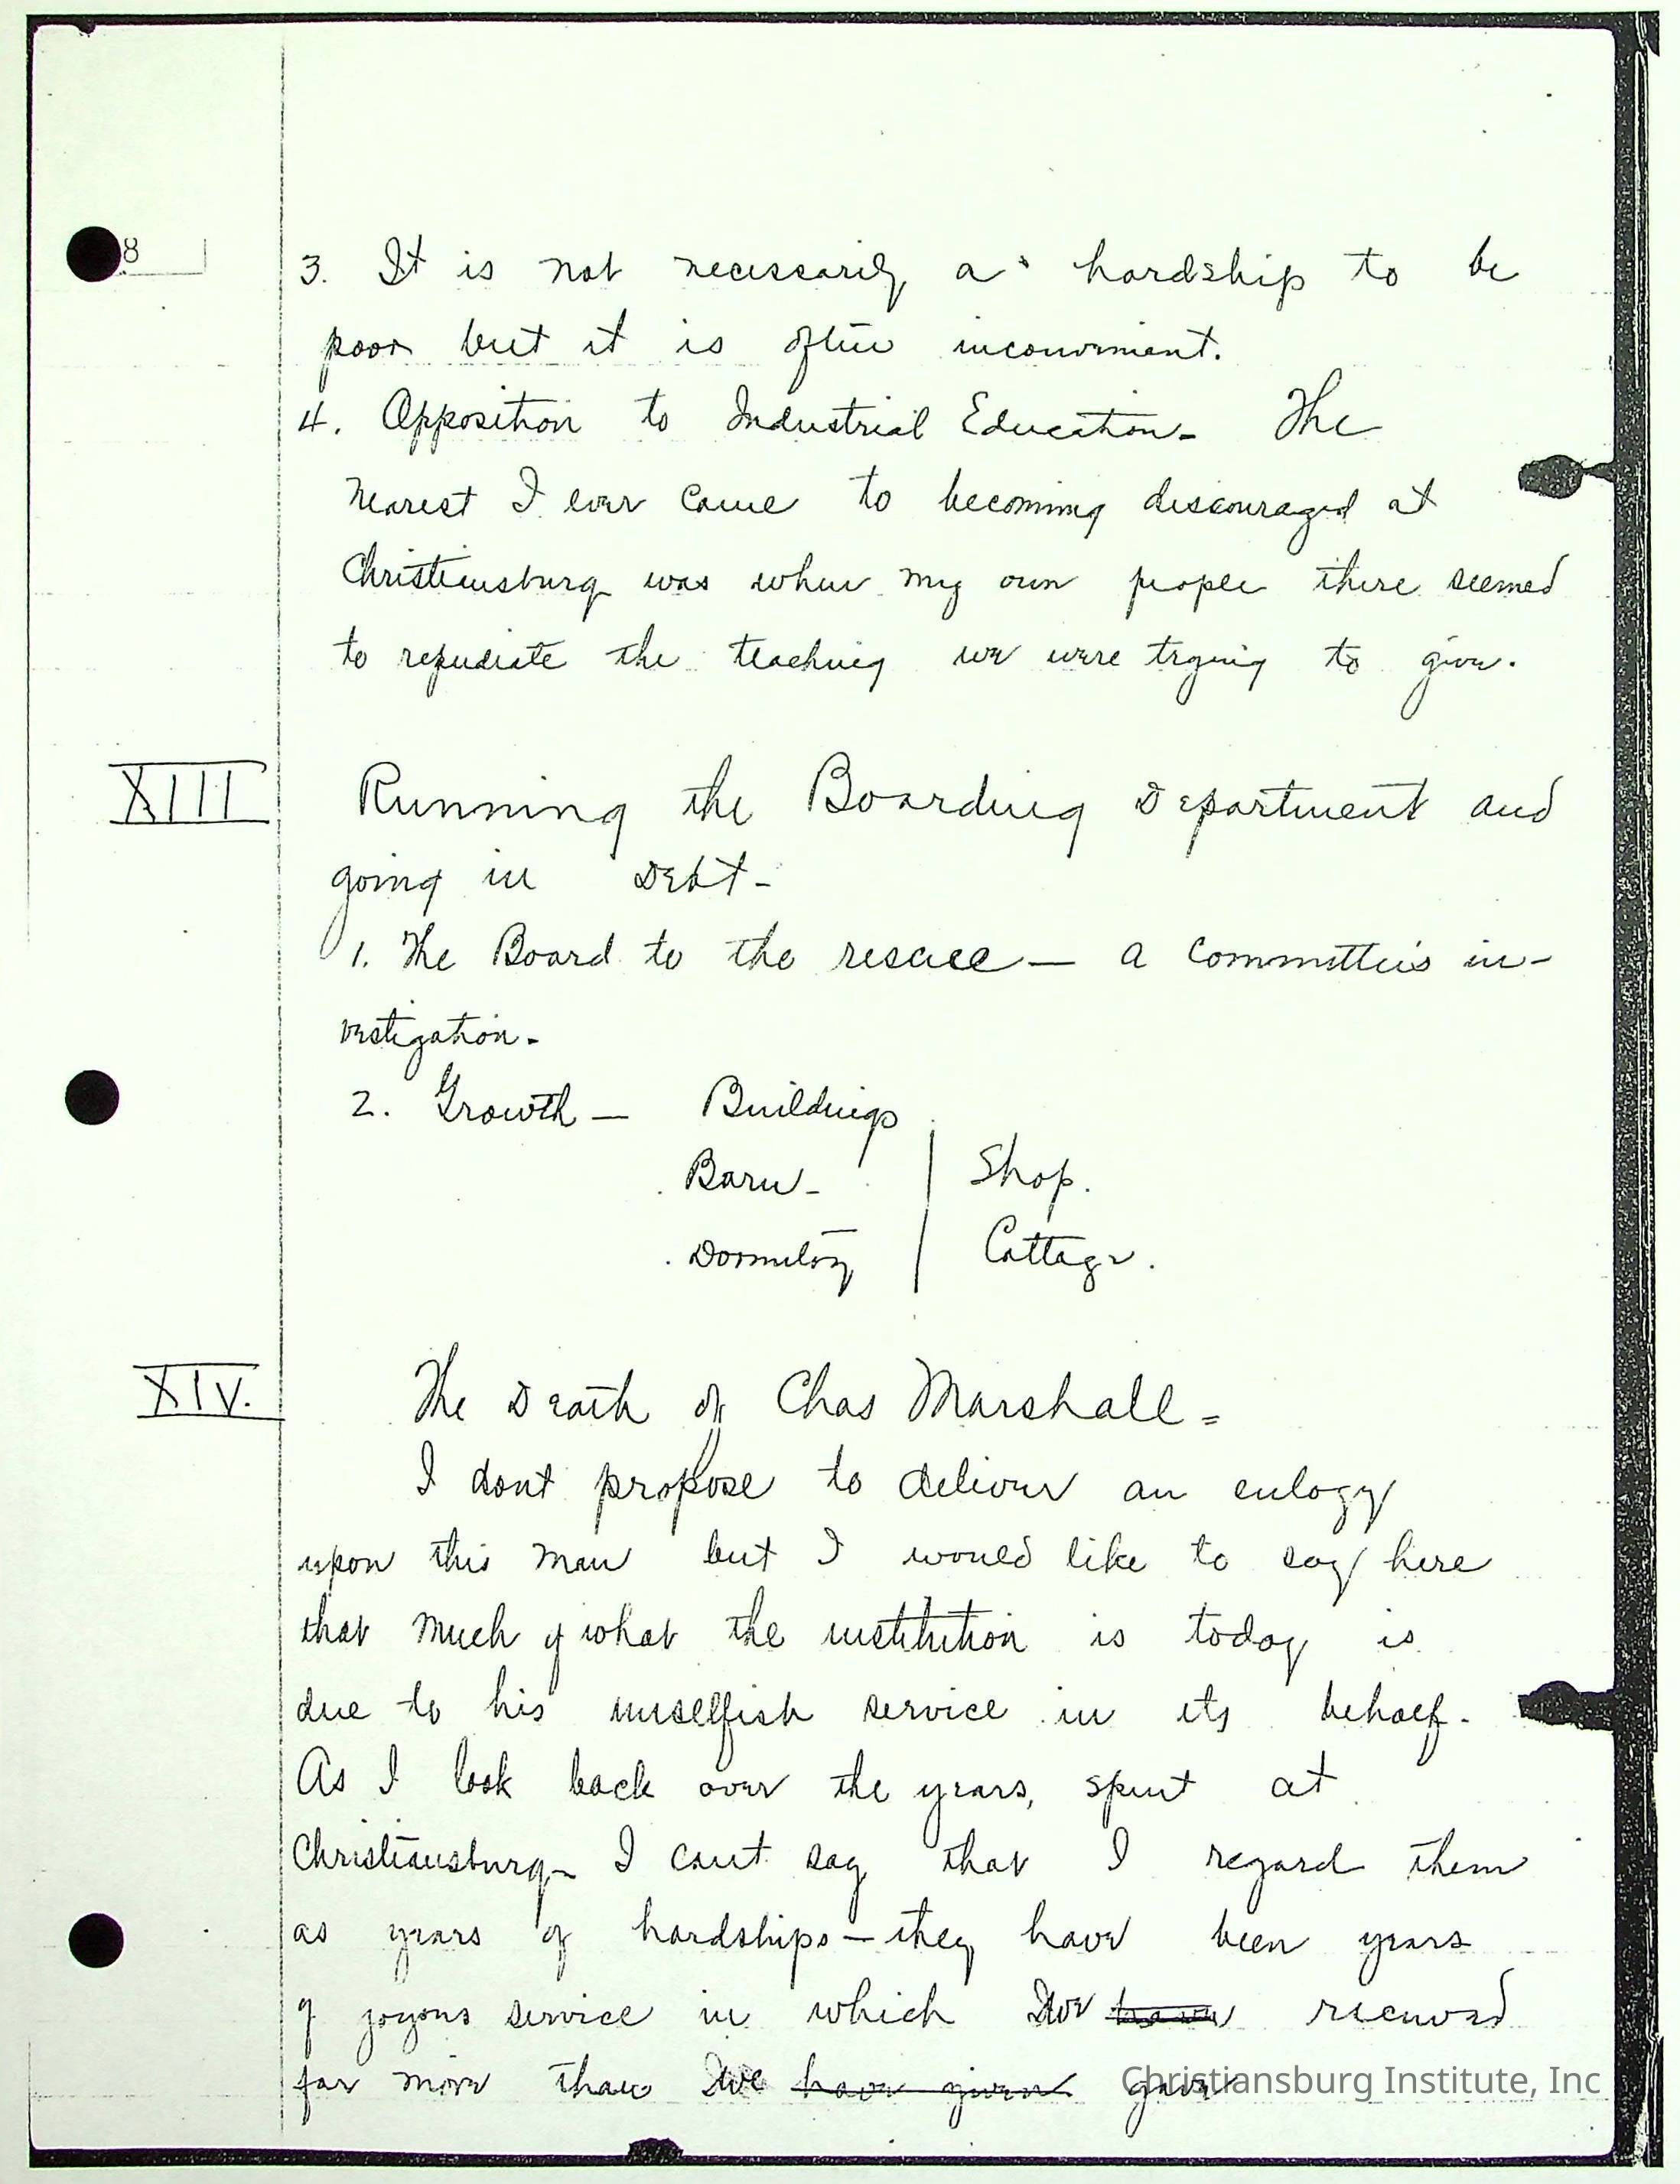 8
3. It is not necessarily a hardship to be
poor but it is often inconvenient.
4. Opposition to Industrial Education - The
nearest I ever came to becoming discouraged at
Christiansburg was when my own people there seemed
to repudiate the teaching we were trying to give.
XIII Running the Boarding Department and
going in Debt -
1. The Board to the rescue — a committee's in-
vestigation -
2. Growth — Buildings
Barn - | Shop.
Dormitory | Cottage.
XIV. The Death of Chas Marshall =
I dont propose to deliver an eulogy
upon this man but I would like to say here
that much of what the institution is today is
due to his unselfish service in its behalf -
As I look back over the years, spent at
Christiansburg - I cant say that I regard them
as years of hardships — they have been years
of joyous service in which we have received
far more than we have given gave
Christiansburg Institute, Inc